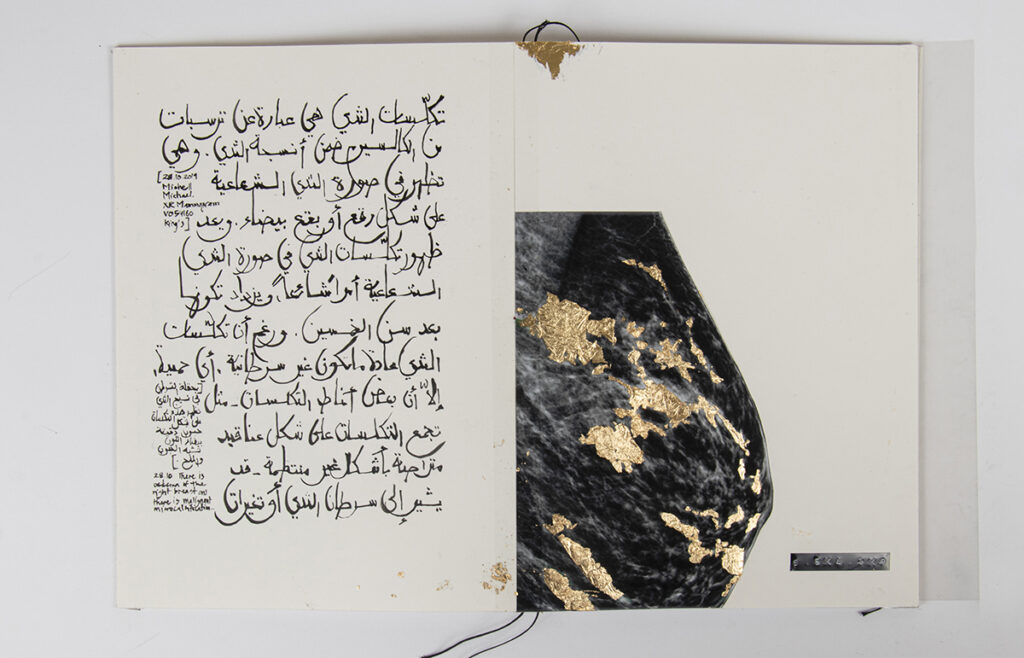 تكلّسات الثدي هي عبارة عن ترسبات
من الكالسيوم ضمن أنسجة الثدي. وهي
تظهر في صورة الثدي الشعاعية
على شكل رقع أو بقع بيضاء. ويعد
ظهور تكلّسات الثدي في صورة الثدي
الشعاعية أمراً شائعاً، ويزداد تكونها
بعد سن الخمسين. ورغم أن تكلّسات
الثدي عادة ماتكون غير سرطانية، أي حميدة،
إلاّ أن بعض أنماط التكلسات ـ مثل
تجمع التكلسات على شكل عناقيد
متراصة بأشكال غير منتظمة ـ قد
يشير إلى سرطان الثدي أو تغيرات
[28.10.2019
Michael.
XR Mammogram
King's]
في نسيج الثدي
على شكل
28.10 There is
oedema of the
right breast and
there is malignant
microcalcification.